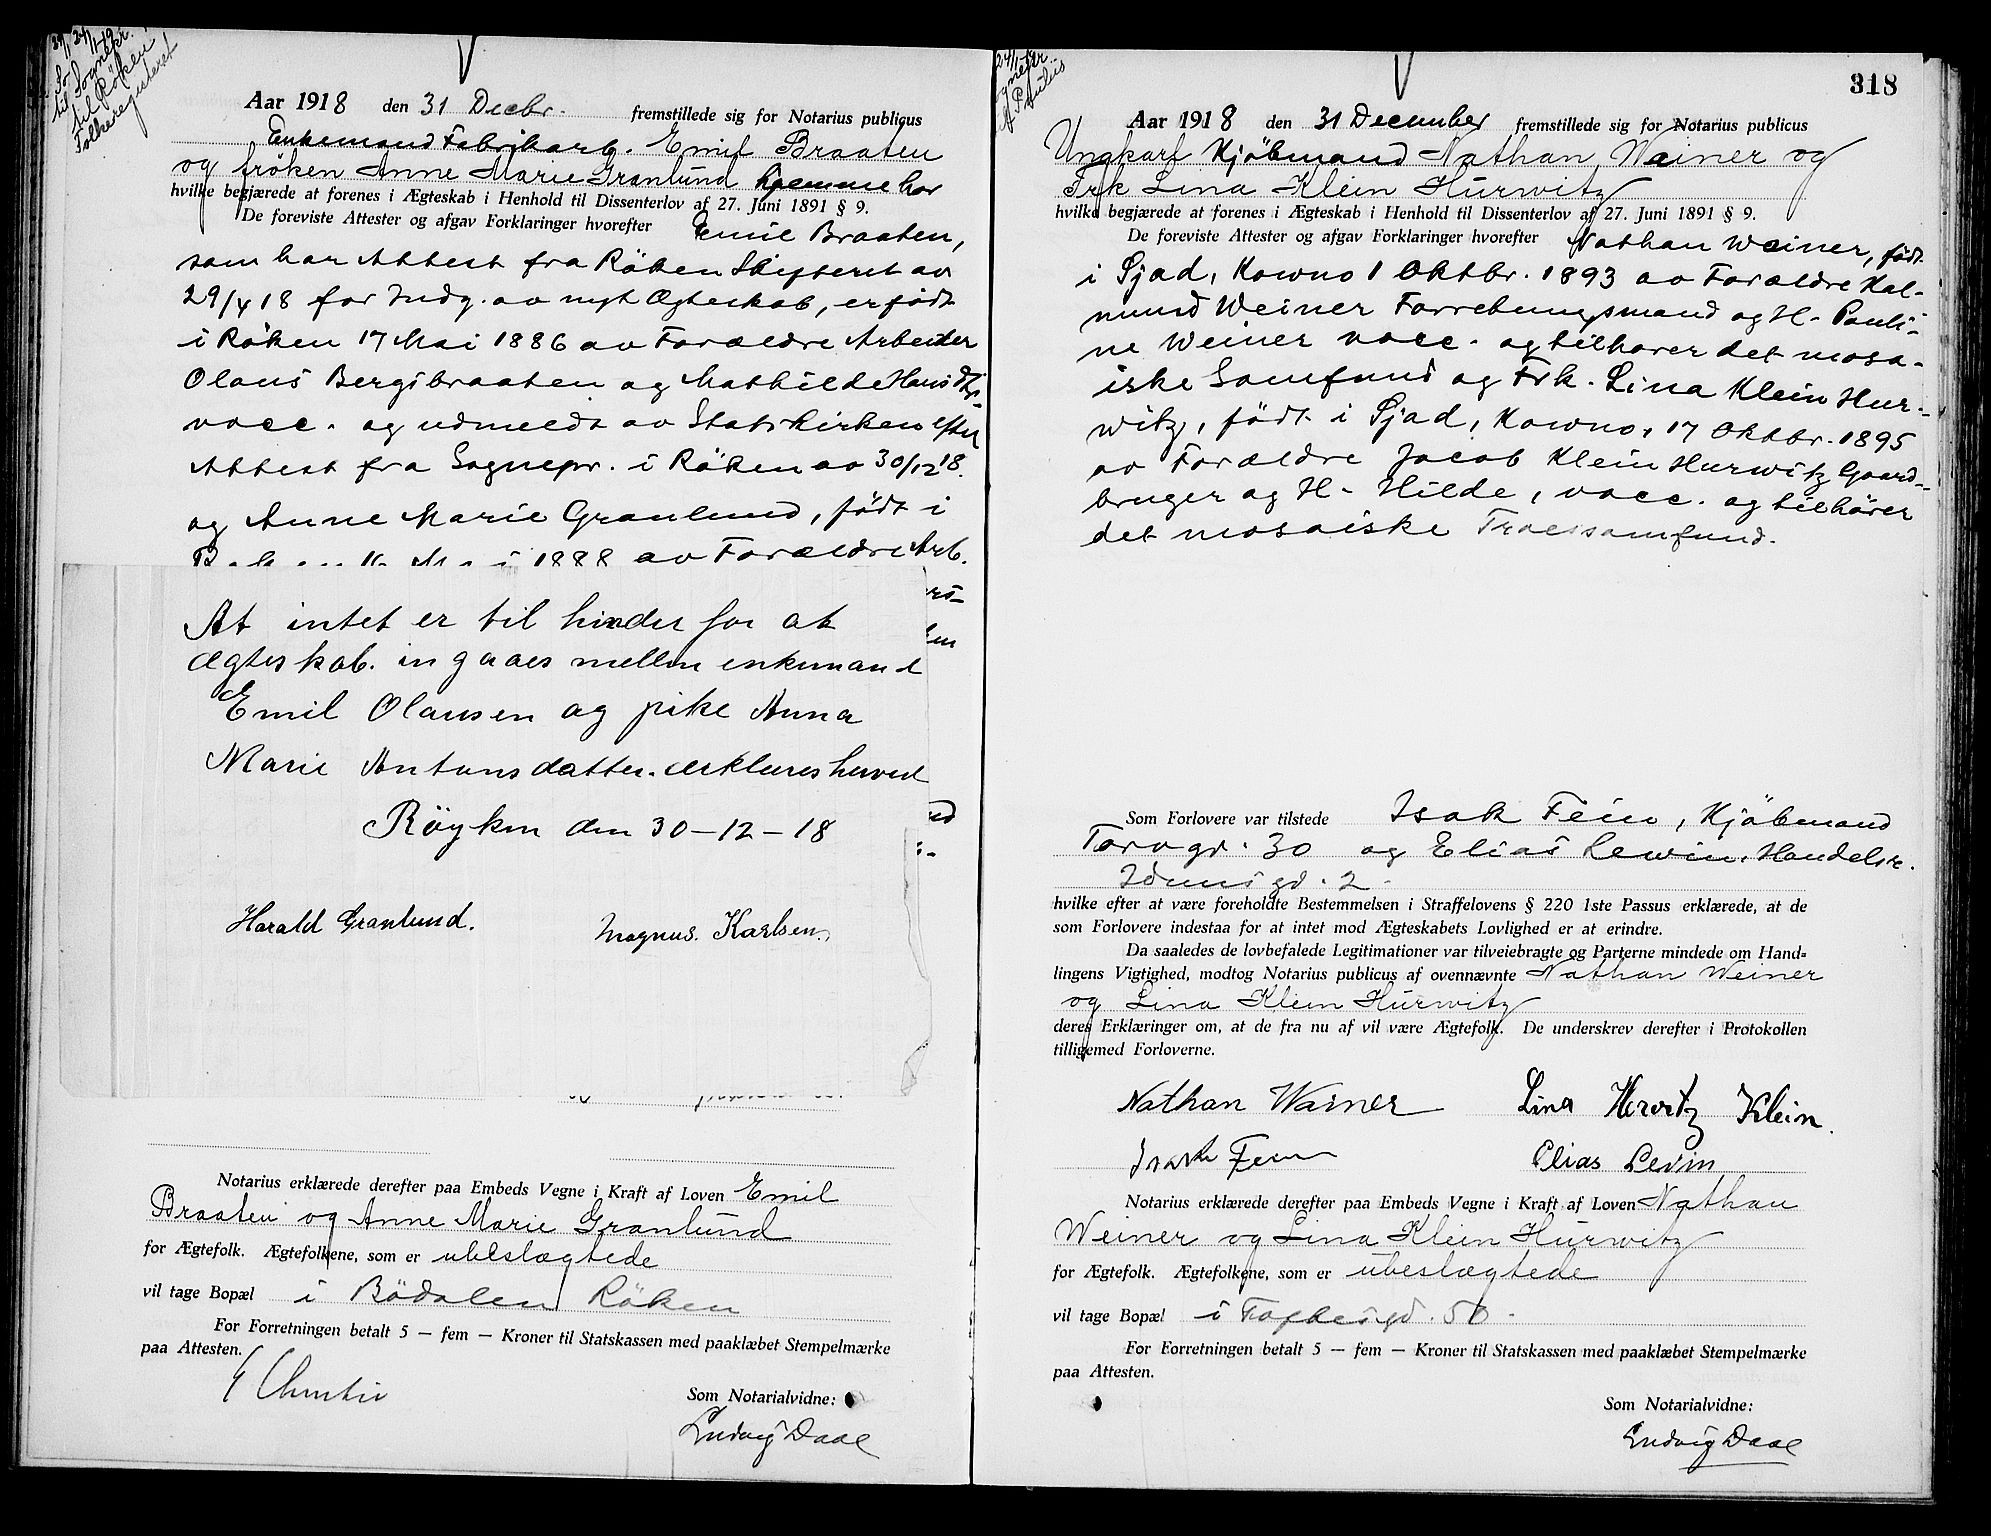 29/1 24/1-19.
So. Sognepr.
til Röken
til Folkeregisteret
Aar 1918 den 31 Decbr. fremstillede sig for Notarius publicus
Enkemand Fabrikarb. Emil Braaten
og fröken Anne Marie Granlund hjemmehør
hvilke begjærede at forenes i Ægteskab i Henhold til Dissenterlov af 27. Juni 1891 § 9.
De foreviste Attester og afgav Forklaringer hvorefter Emil Braaten,
som har Attest fra Röken Skifteret av
29/4 18 for Indg. av nyt Ægteskab, er födt
i Röken 17 Mai 1886 av Forældre Arbeider
Olaus Bergsbraaten og Mathilde Hansdtr.
vacc. og udmeldt av Statskirken efter
Attest fra Sognepr. i Röken av 30/12 18.
og Anne Marie Granlund, födt i
1888 av Forældre Arb.
At intet er til hinder for at
ægteskab. ingaaes mellem enkemand
Emil Olausen og pike Anna
Marie Antonsdatter. erklæres herved
Röyken den 30-12-18
Harald Granlund. Magnus. Karlsen.
Notarius erklærede derefter paa Embeds Vegne i Kraft af Loven Emil
Braaten og Anne Marie Granlund
for Ægtefolk. Ægtefolkene, som er ubeslægtede
vil tage Bopæl i Bödalen Röken
For Forretningen betalt 5 — fem — Kroner til Statskassen med paaklæbet Stempelmærke
paa Attesten.
Som Notarialvidne:
Ludvig Daae
318
Aar 1918 den 31 December fremstillede sig for Notarius publicus
Ungkarl Kjöbmand Nathan Weiner og
Frk Lina Klein Hurwitz
hvilke begjærede at forenes i Ægteskab i Henhold til Dissenterlov af 27. Juni 1891 § 9.
De foreviste Attester og afgav Forklaringer hvorefter Nathan Weiner, födt
i Sjad, Kowno 1 Oktbr. 1893 av Forældre Kal-
mund Weiner Forretningsmand og H. Pauli-
ne Weiner vacc. og tilhører det mosa-
iske Samfund og Frk. Lina Klein Hur-
witz, födt i Sjad, Kowno, 17 Oktbr. 1895
av Forældre Jacob Klein Hurwitz Gaard-
bruger og H. Hilde, vacc. og tilhörer
det mosaiske Troessamfund.
Som Forlovere var tilstede Isak Fein, Kjöbmand
Torvgd. 30 og Elias Lewin, Handelsr.
Idunsgd. 2.
hvilke efter at være foreholdte Bestemmelsen i Straffelovens § 220 1ste Passus erklærede, at de
som Forlovere indestaa for at intet mod Ægteskabets Lovlighed er at erindre.
Da saaledes de lovbefalede Legitimationer var tilveiebragte og Parterne mindede om Hand-
lingens Vigtighed, modtog Notarius publicus af ovennævnte Nathan Weiner
og Lina Klein Hurwitz
deres Erklæringer om, at de fra nu af vil være Ægtefolk. De underskrev derefter i Protokollen
tilligemed Forloverne.
Nathan Wainer Lina Herwitz Klein.
Isak Fein Elias Levin
Notarius erklærede derefter paa Embeds Vegne i Kraft af Loven Nathan
Weiner og Lina Klein Hurwitz
for Ægtefolk. Ægtefolkene, som er ubeslægtede
vil tage Bopæl i Toftesgd. 50.
For Forretningen betalt 5 — fem — Kroner til Statskassen med paaklæbet Stempelmærke
paa Attesten.
Som Notarialvidne:
Ludvig Daae